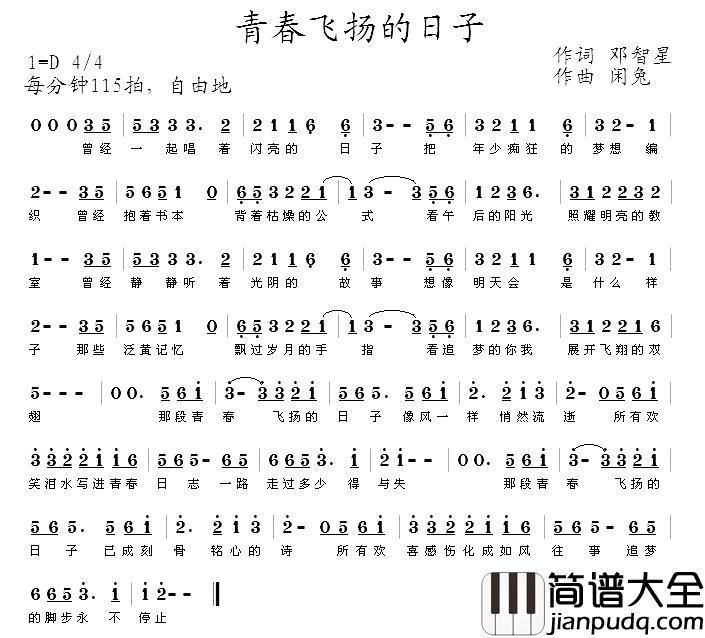 青春飞扬的日子
1=D 4/4
每分钟115拍，自由地
作词 邓智星
作曲 闲兔
0 0 0 3 5 | 5 3 3 3. 2 | 2 1 1 6 6 | 3 - - 5 6 | 3 2 1 1 6 | 3 2 - 1
曾经 一起唱着 闪亮的 日子 把 年少痴狂的梦想编
2 - - 3 5 | 5 6 5 1 0 | 6 5 3 2 2 1 | 1 3 - 3 5 6 | 1 2 3 6 | 3 2 2 1 2
织 曾经 抱着书本 背着枯燥的公式 看午后的阳光 照耀明亮的教
1 - - 3 5 | 5 3 3 3. 2 | 2 1 1 6 6 | 3 - - 5 6 | 3 2 1 6 | 3 2 2 1
室 曾经 静静听着 光阴的 故事 想像 明天会 是 什么样
2 - - 3 5 | 5 6 5 1 0 | 6 5 3 2 2 1 | 1 3 - 3 5 6 | 1 2 3 6 | 3 2 2 1 2
子 那些 泛黄记忆 飘过岁月的手指 看追梦的你我 展开飞翔的双
5 - - - | 0 0. 5 6 1 | 3 - 3 3 2 1 | 5 6 5. 5 6 1 | 2. 2 1 6 1 | 2 - 0 5 6 1
翅 那段青春 飞扬的 日子 像风一样 悄然流逝 所有欢
3 3 2 2 1 6 | 5 6 5 - 5 6 | 5 2 2 3. 1 | 2 1 - - | 0 0. 5 6 1 | 3 - 3 3 2 1
笑泪水写进青春 日志 一路 走过多少 得 与失 那段青春 飞扬的
5 6 5. 5 6 1 | 2. 2 1 6 1 | 2 - 0 5 6 1 | 3 3 2 2 1 6 | 5 6 5. 5 6
日子 已成刻骨 铭心的诗 所有欢 喜感伤化成如风 往事 追梦
6 6 5 3. 1 | 2 - - - ‖
的脚步永 不 停止
简谱大全
jianpudq.com